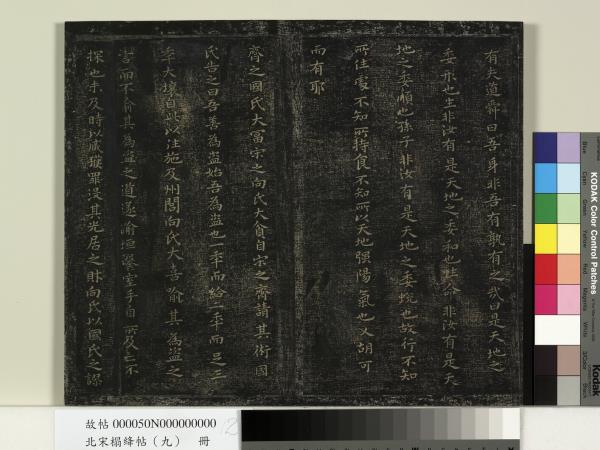 有夫道舜曰吾身非吾有孰有之哉曰是天地之
委形也生非汝有是天地之委和也性命非汝有是天
地之委順也孫子非汝有是天地之委蛻也故行不知
所往處不知所持食不知所以天地强陽氣也又胡可
而有耶
齊之國氏大富宋之向氏大貧自宋之齊請其術國
氏告之曰吾善為盜始吾為盜也一年而給二年而足三
年大壤自此以往施及州閭向氏大喜喻其為盜之
言而不喻其為盜之道遂踰垣鑿室手目所及亡不
探也未及時以贓獲罪沒其先居之財向氏以國氏之謬
故帖 000050N000000000
北宋搨絳帖（九） 冊
KODAK Color Control Patches
Blue
Cyan
Green
Yellow
Red
Magenta
White
3/Color
Black
Kodak